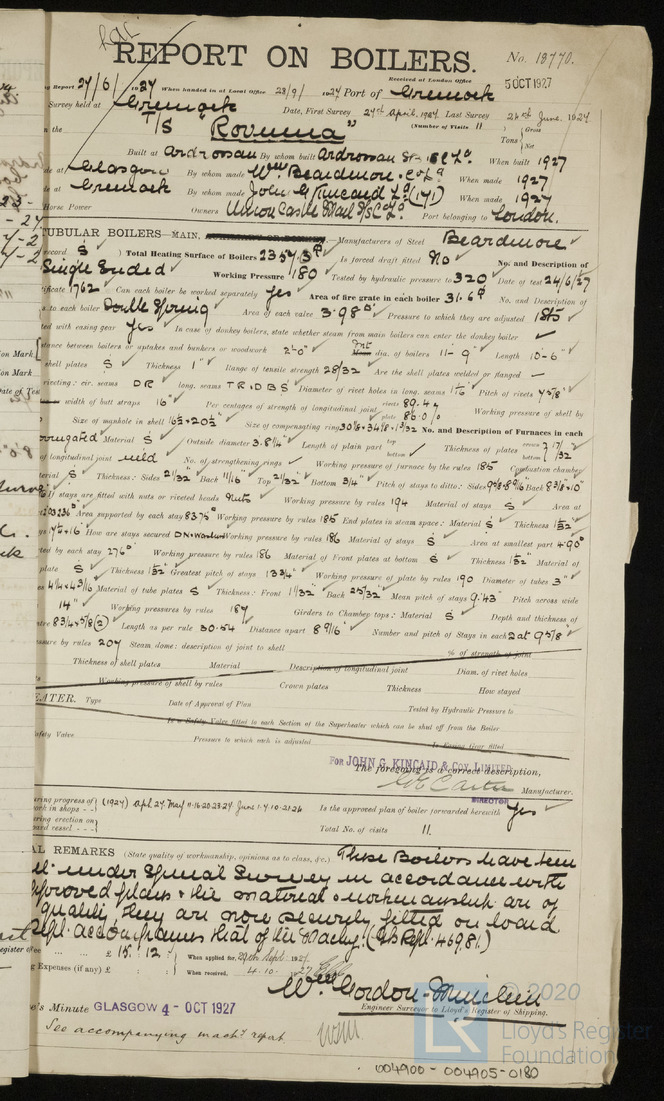 REPORT ON BOILERS.
No. 18770.
Received at London Office 5 OCT 1927
Report 27/6/1927 When handed in at Local Office 28/9/1927 Port of Greenock
Survey held at Greenock Date, First Survey 27th April, 1927 Last Survey 24th June, 1927
(Number of Visits 11)
in the T/S "Rovuma" Tons { Gross Net
Built at Ardrossan By whom built Ardrossan When built 1927
at Glasgow By whom made Wm Beardmore & Co Ld When made 1927
at Greenock By whom made John G. Kincaid & Ld (171) When made 1927
Horse Power Owners Union Castle Mail S/S Co Ld. Port belonging to London.
TUBULAR BOILERS—MAIN, Manufacturers of Steel Beardmore
record S) Total Heating Surface of Boilers Is forced draft fitted No No. and Description of
Single Ended Working Pressure 180 Tested by hydraulic pressure to 320 Date of test 24/6/27
tificate 1762 Can each boiler be worked separately Yes Area of fire grate in each boiler 31.6 No. and Description of
to each boiler Double Spring Area of each valve 3.98 Pressure to which they are adjusted 185
ted with easing gear Yes In case of donkey boilers, state whether steam from main boilers can enter the donkey boiler
stance between boilers or uptakes and bunkers or woodwork 2'-0" Int dia. of boilers 11-9" Length 10-6"
shell plates S Thickness 1" Range of tensile strength 28/32 Are the shell plates welded or flanged -
riveting: cir. seams DR long. seams TR.DBS Diameter of rivet holes in long. seams 1 1/16 Pitch of rivets 7 5/8"
width of butt straps 16" Per centages of strength of longitudinal joint rivets 89.4 plate 86.0 Working pressure of shell by
Size of manhole in shell 16½ x 20½" Size of compensating ring No. and Description of Furnaces in each
orrugated Material S Outside diameter 3.8 1/4 Length of plain part top bottom Thickness of plates crown bottom 17/32
of longitudinal joint weld No. of strengthening rings Working pressure of furnace by the rules 185 Combustion chamber
terial S Thickness: Sides 21/32 Back 11/16 Top 21/32 Bottom 3/4" Pitch of stays to ditto: Sides Back
If stays are fitted with nuts or riveted heads Nuts Working pressure by rules 194 Material of stays S Area at
Area supported by each stay 83.75 Working pressure by rules 185 End plates in steam space: Material S Thickness 1 1/32"
How are stays secured Working pressure by rules 186 Material of stays S Area at smallest part 4.90
ted by each stay 276 Working pressure by rules 186 Material of Front plates at bottom S Thickness 1 1/32" Material of
plate S Thickness 1 1/32 Greatest pitch of stays 13 3/4" Working pressure of plate by rules 190 Diameter of tubes 3"
4 1/4 x 4 3/16 Material of tube plates S Thickness: Front 1 1/32 Back 25/32 Mean pitch of stays 9.43" Pitch across wide
14" Working pressures by rules 187 Girders to Chamber tops: Material S Depth and thickness of
8 3/4 x 7/8 (2) Length as per rule 30.54 Distance apart 8 9/16" Number and pitch of Stays in each 2 at 9 5/8"
ssure by rules 207 Steam dome: description of joint to shell % of strength of joint
Thickness of shell plates Material Description of longitudinal joint Diam. of rivet holes
Working pressure of shell by rules Crown plates Thickness How stayed
EATER. Type Date of Approval of Plan Tested by Hydraulic Pressure to
Is a Safety Valve fitted to each Section of the Superheater which can be shut off from the Boiler
afety Valve Pressure to which each is adjusted Is Easing Gear fitted
FOR JOHN G. KINCAID & COY. LIMITED
The foregoing is a correct description,
Manufacturer.
DIRECTOR
uring progress of work in shops - - (1927) Apl 27. May 11.16.20.23.27 June 1.7.10.21.26 Is the approved plan of boiler forwarded herewith Yes
uring erection on board vessel - - - Total No. of visits 11.
AL REMARKS (State quality of workmanship, opinions as to class, &c.) These Boilers have been
under Special Survey in accordance with
approved plans & the material & workmanship are of
quality, they are now securely fitted on board.
Rept. accompanies that of the Machy. (Gls Rept. 46981.)
ee ... £ 15 : 12 : When applied for, 29th Sept. 1927.
g Expenses (if any) £ : : When received, 4.10.1927
Wm Gordon-
Engineer Surveyor to Lloyd's Register of Shipping.
's Minute GLASGOW 4 - OCT 1927
See accompanying mach'y report.
© 2020
LR
Lloyd's Register
Foundation
004900 - 004905-0180